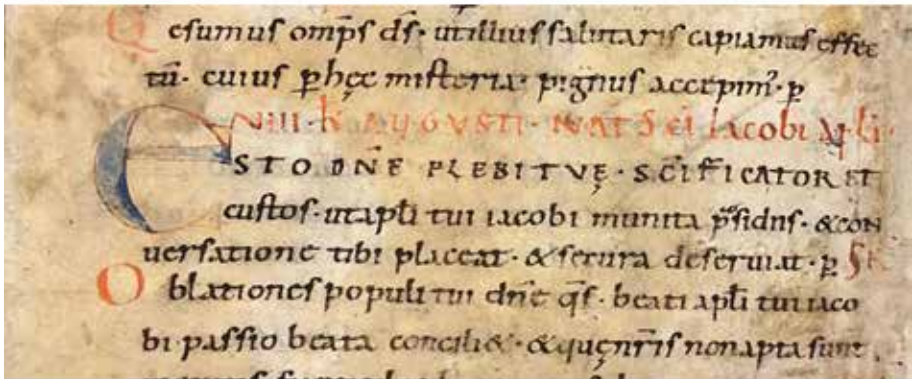 Qesumus omp̄s ds̄· ut illius salutaris capiamus effec
tū· cuius ꝑ hęc misteria· pignus accepim᾽· ꝑ
VIII · k̄ AVGVSTI · NAT Sc̄i Iacobi Apl̄i·
ESTO DN̄E PLEBI TVĘ · SC̄IFICATOR ET
custos· ut apl̄i tui iacobi munita p̄sidiis· & con
uersatione tibi placeat· & secura deseruiat· ꝑ
Oblationes populi tui dn̄e qs̄· beati apl̄i tui iaco
bi passio beata conciliet· & quę nr̄is non apta sunt